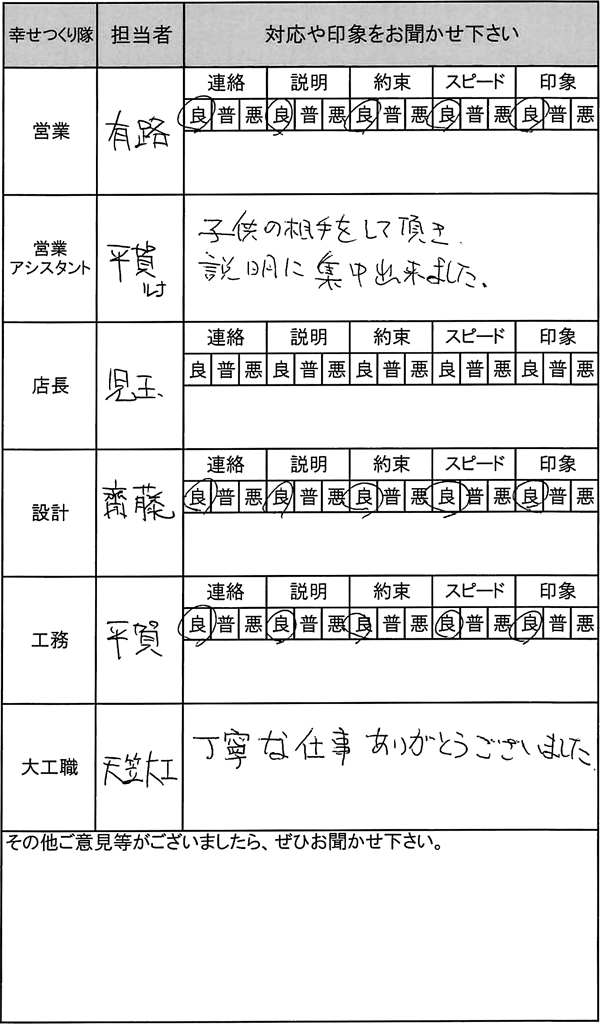 幸せつくり隊 担当者 対応や印象をお聞かせ下さい
連絡 説明 約束 スピード 印象
営業 有路 良 普 悪 良 普 悪 良 普 悪 良 普 悪 良 普 悪
子供の相手をして頂き、
営業
アシスタント 平賀
説明に集中出来ました。
連絡 説明 約束 スピード 印象
店長 児玉、 良 普 悪 良 普 悪 良 普 悪 良 普 悪 良 普 悪
連絡 説明 約束 スピード 印象
設計 齊藤 良 普 悪 良 普 悪 良 普 悪 良 普 悪 良 普 悪
連絡 説明 約束 スピード 印象
工務 平賀 良 普 悪 良 普 悪 良 普 悪 良 普 悪 良 普 悪
大工職 天笠大工 丁寧な仕事ありがとうございました
その他ご意見等がございましたら、ぜひお聞かせ下さい。